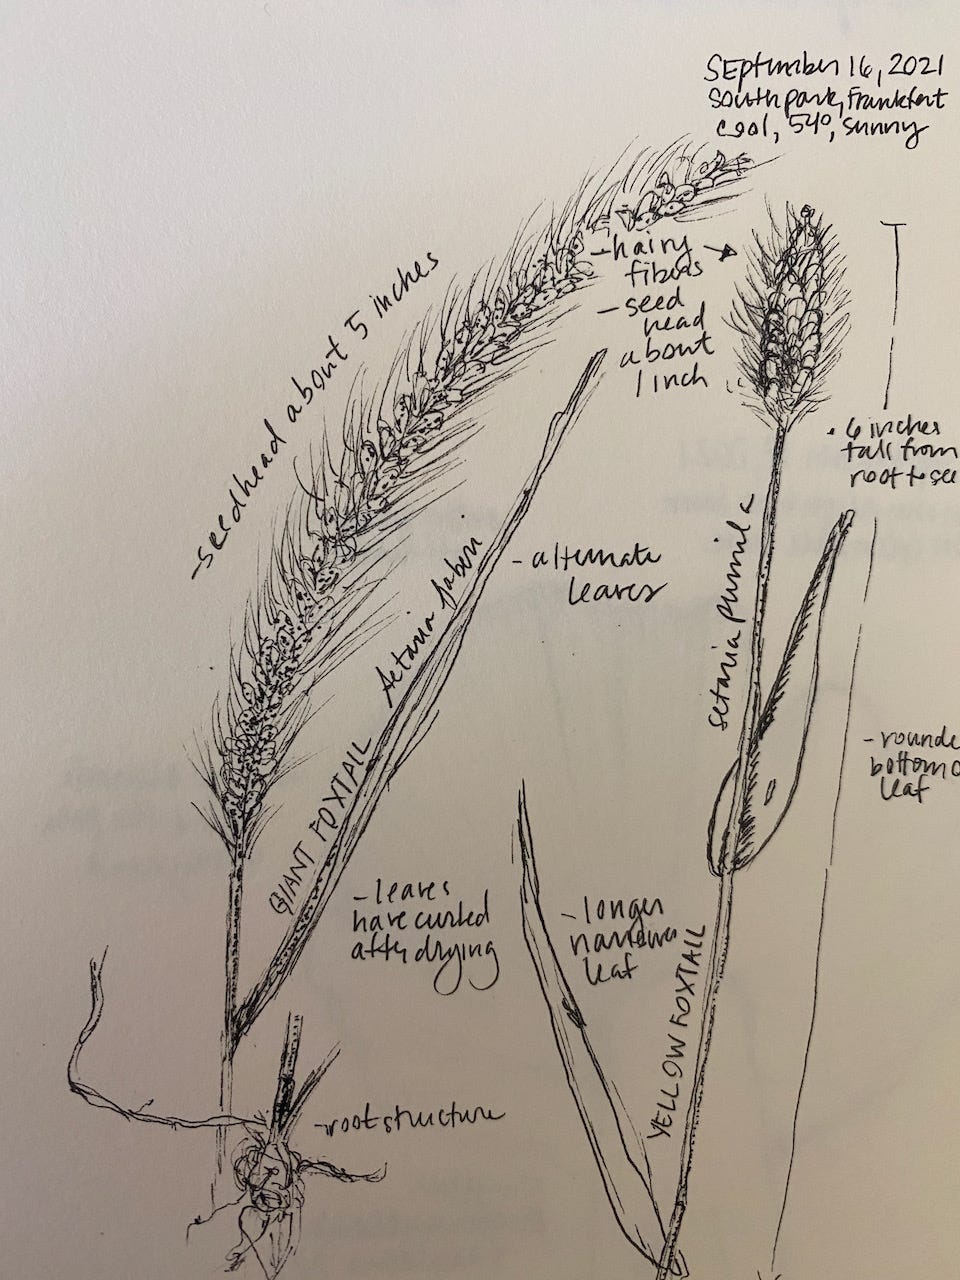 September 16, 2021
South park, Frankfort
cool, 54°, sunny
- seedhead about 5 inches
- hairy
fibers
- seed
head
about
1 inch
. 6 inches
tall from
root to see
- alternate
leaves
Setaria faberi
GIANT FOXTAIL
setaria pumila
- rounde
bottom o
leaf
- leaves
have curled
after drying
- longer
narrower
leaf
YELLOW FOXTAIL
- root structure